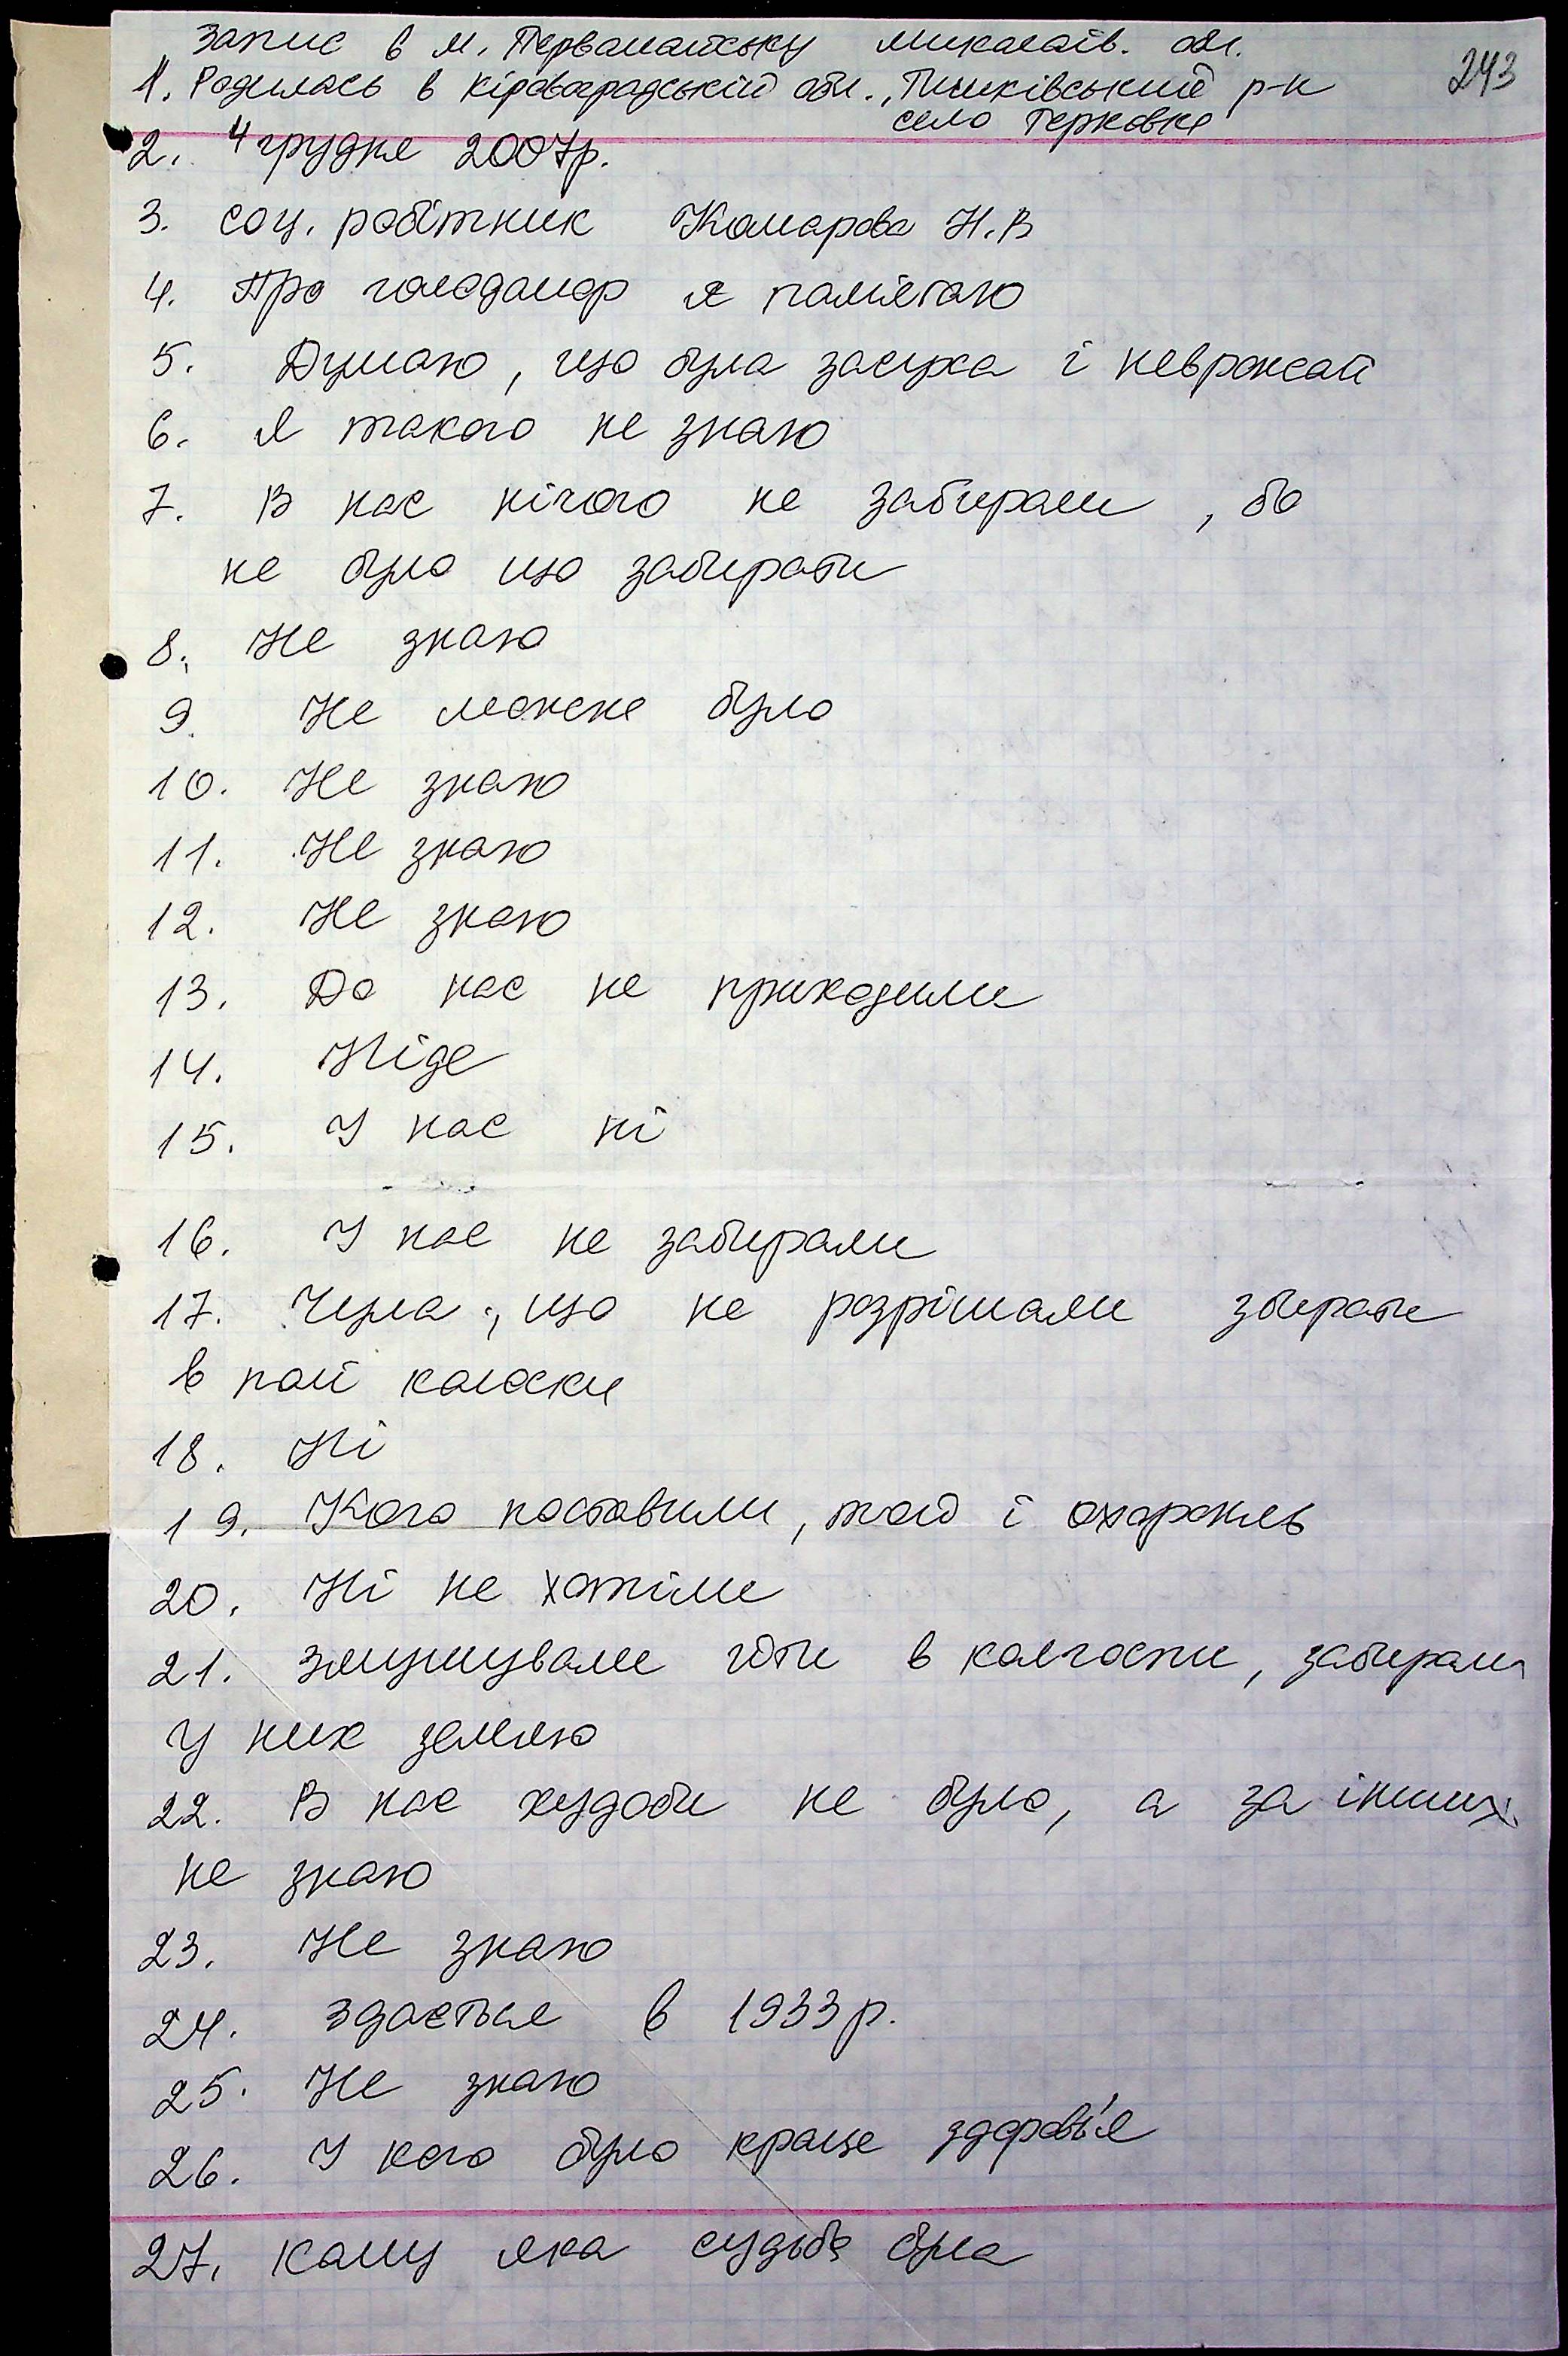 Запис в м. Первамайську Миколаїв. обл.
243
1. Родилась в Кіровоградській обл., Пишківський р-н
село Терновке
2. 4 грудня 2007р.
3. соц. робітник Комарова Н.В
4. Про голодомор я памʼятаю
5. Думаю, що була засуха і неврожай
6. Я такого не знаю
7. В нас нічого не забирали, бо
не було що забирати
8. Не знаю
9. Не можне було
10. Не знаю
11. Не знаю
12. Не знаю
13. До нас не приходили
14. Ніде
15. У нас ні
16. У нас не забирали
17. Чула, що не розрішали збирати
в полі колоски
18. Ні
19. Кого поставили, той і охороняв
20. Ні не хотіли
21. Змушували йти в колгоспи, забирали
у них землю
22. В нас худоби не було, а за інших
не знаю
23. Не знаю
24. Здається в 1933р.
25. Не знаю
26. У кого було краще здоровʼя
27. Кому яка судьба була